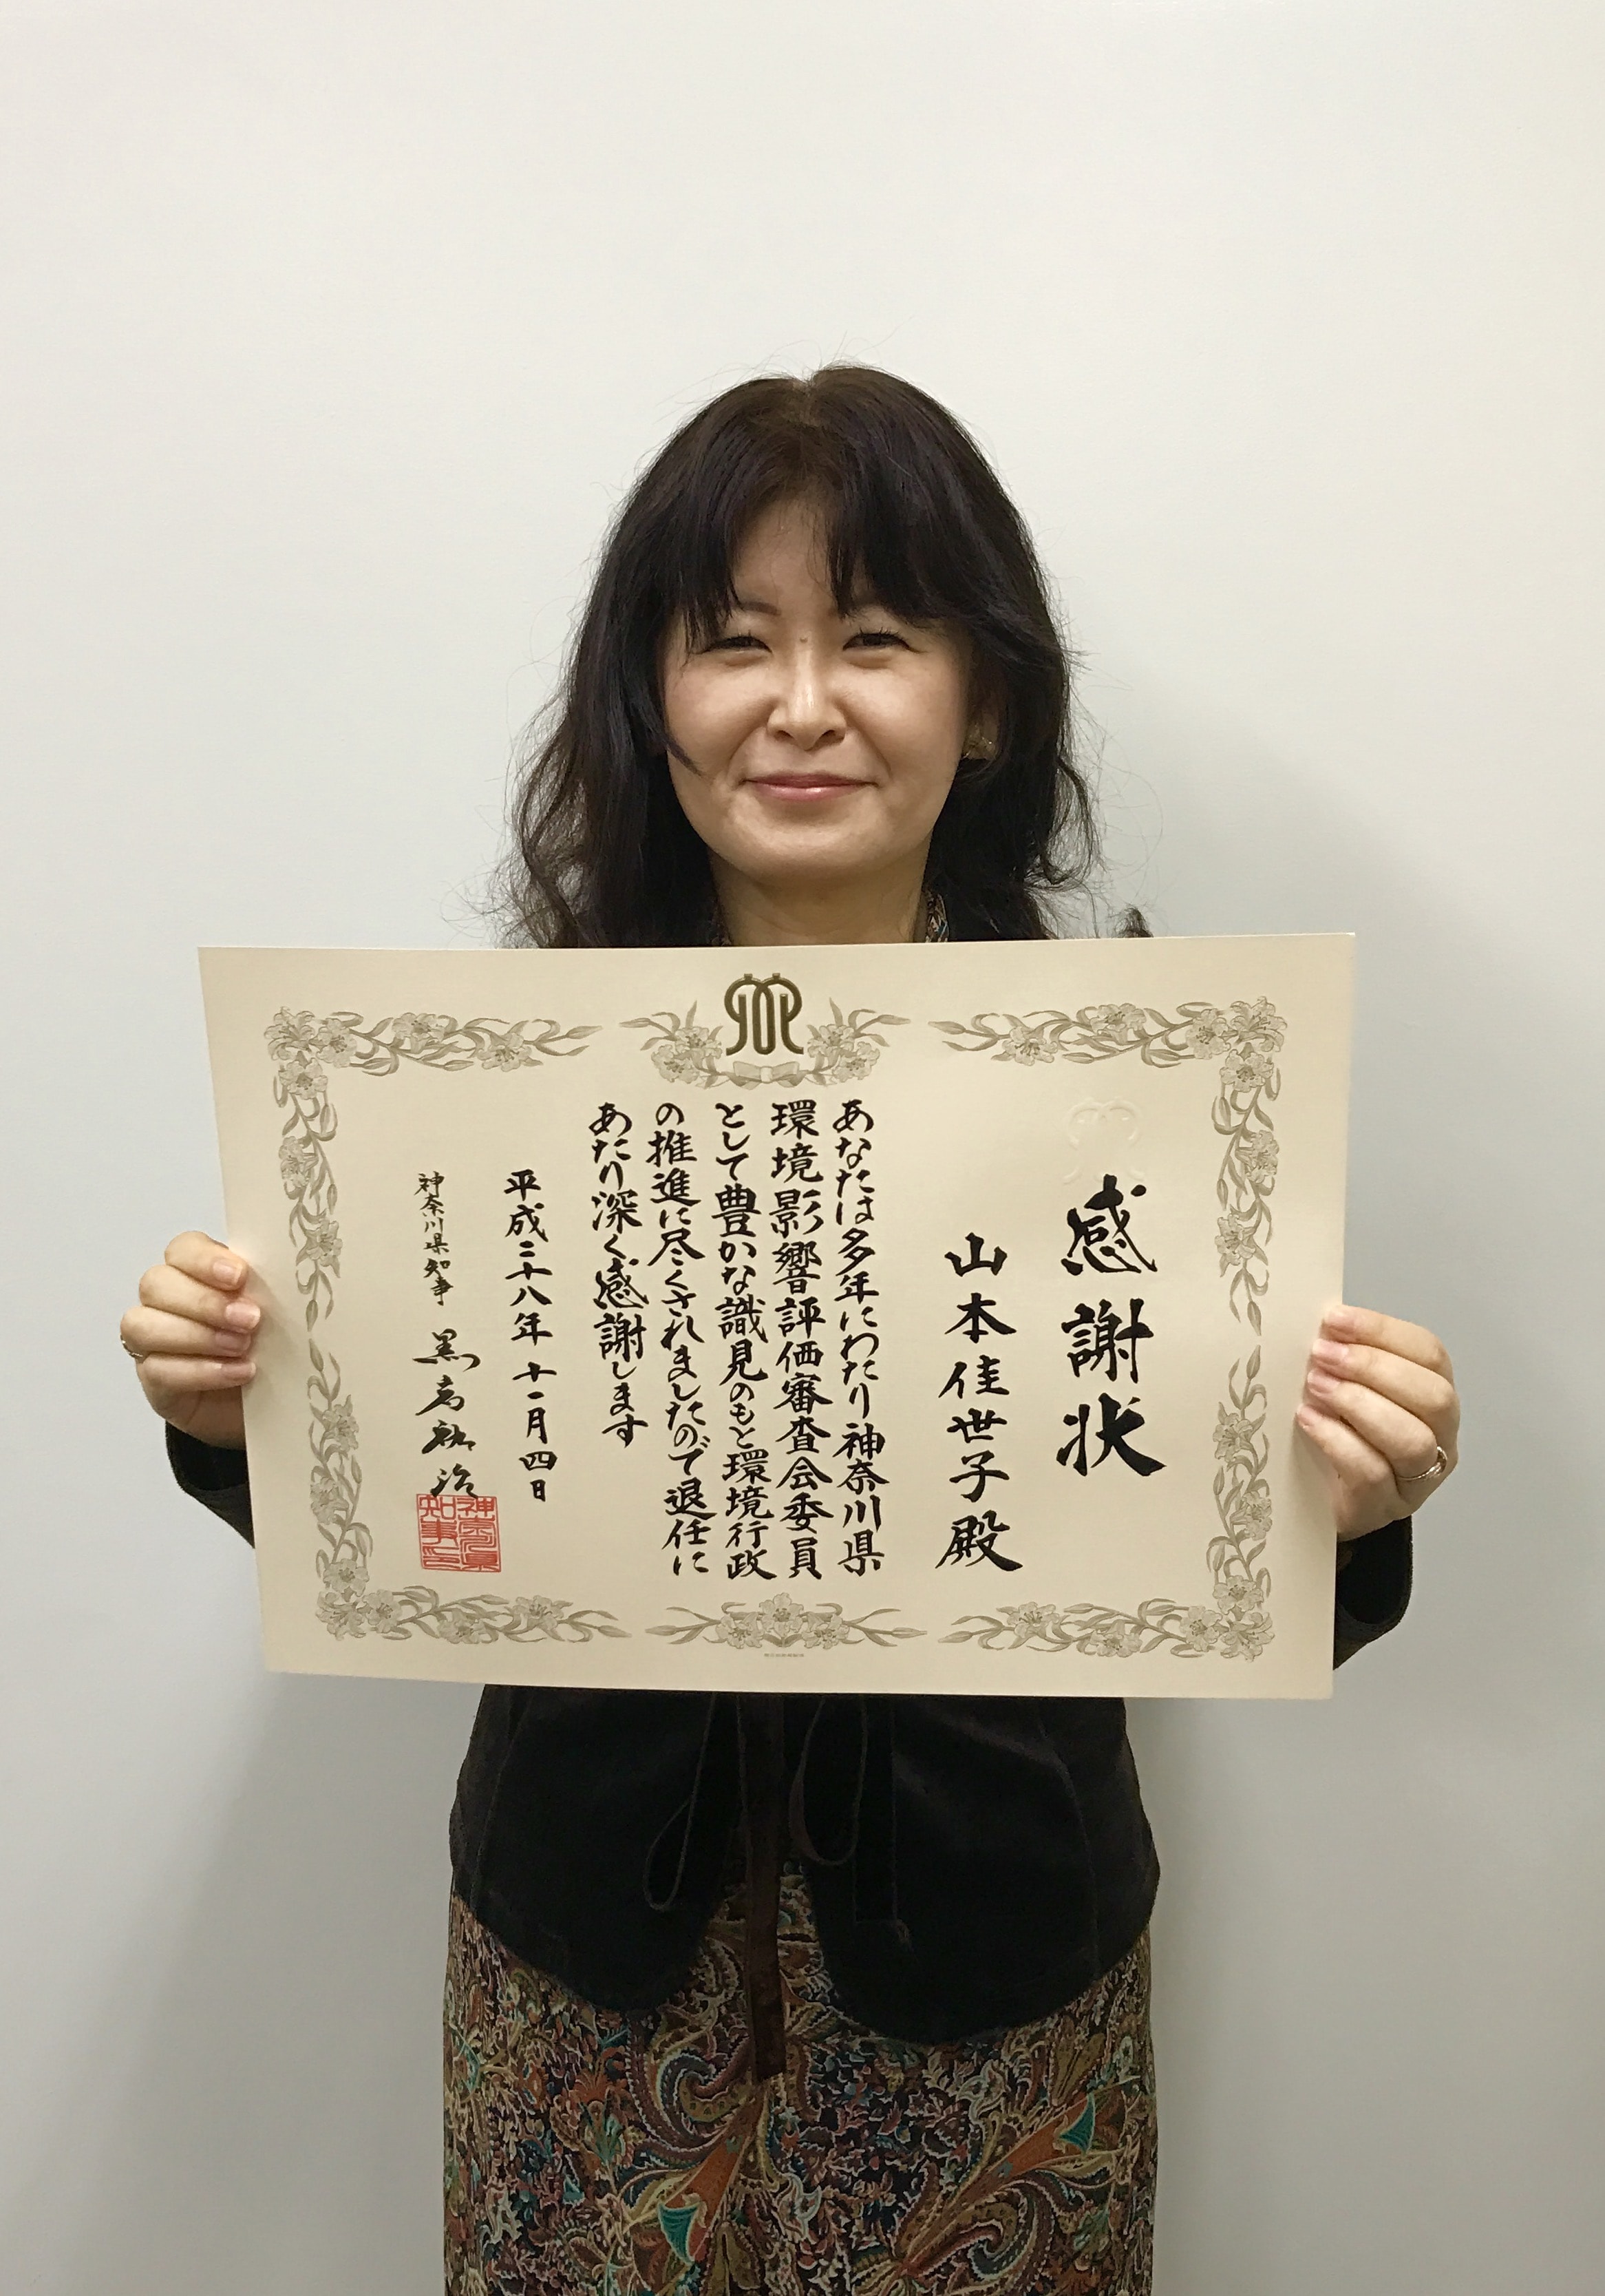 感謝状
山本佳世子殿
あなたは多年にわたり神奈川県
環境影響評価審査会委員
として豊かな識見のもと環境行政
の推進に尽くされましたので退任に
あたり深く感謝します
平成二十八年十一月四日
神奈川県知事 黒岩祐治
神奈川県
知事之印